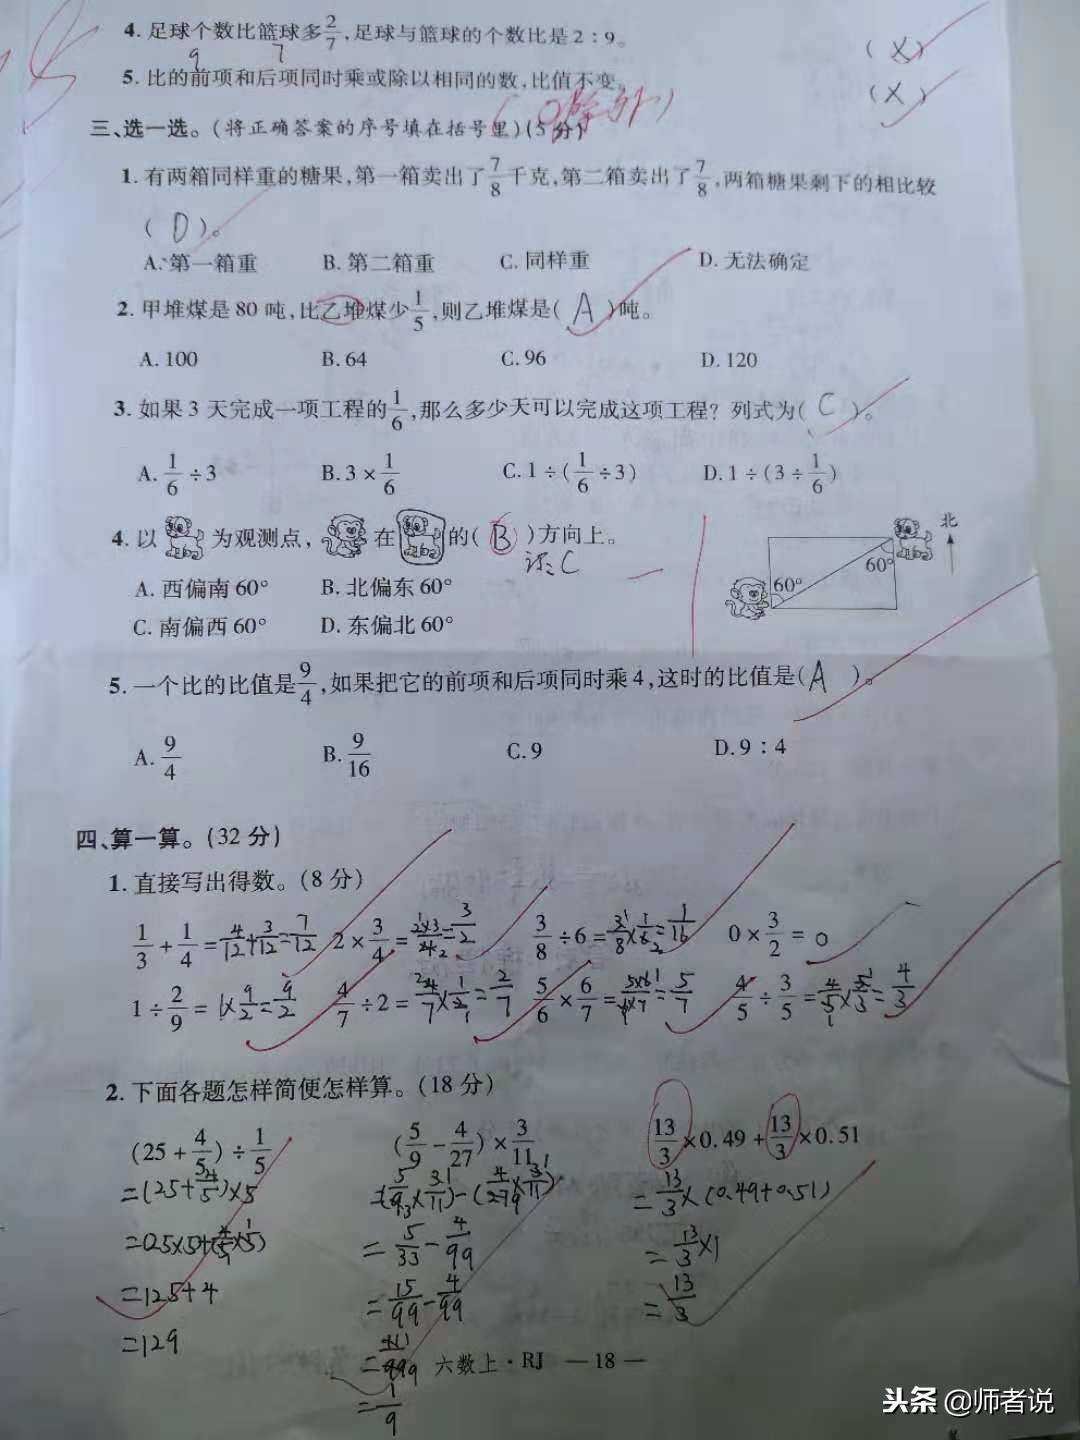 4. 足球个数比篮球多2/7,足球与篮球的个数比是2:9。 (X)
9 7
5. 比的前项和后项同时乘或除以相同的数,比值不变。 (X)
(0除外)
三、选一选。(将正确答案的序号填在括号里)(5分)
1. 有两箱同样重的糖果,第一箱卖出了7/8千克,第二箱卖出了7/8,两箱糖果剩下的相比较
(D)。
A. 第一箱重 B. 第二箱重 C. 同样重 D. 无法确定
2. 甲堆煤是80吨,比乙堆煤少1/5,则乙堆煤是(A)吨。
A. 100 B. 64 C. 96 D. 120
3. 如果3天完成一项工程的1/6,那么多少天可以完成这项工程?列式为(C)。
A. 1/6÷3 B. 3×1/6 C. 1÷(1/6÷3) D. 1÷(3÷1/6)
4. 以 为观测点, 在 的(B)方向上。
北
60°
60°
A. 西偏南60° B. 北偏东60°
C. 南偏西60° D. 东偏北60°
5. 一个比的比值是9/4,如果把它的前项和后项同时乘4,这时的比值是(A)。
A. 9/4 B. 9/16 C. 9 D. 9:4
四、算一算。(32分)
1. 直接写出得数。(8分)
1/3+1/4=4/12+3/12=7/12 2×3/4=3/2 3/8÷6=3/8×1/6=1/16 0×3/2=0
1÷2/9=1×9/2=9/2 4/7÷2=4/7×1/2=2/7 5/6×6/7=5×6/6×7=5/7 4/5÷3/5=4/5×5/3=4/3
2. 下面各题怎样简便怎样算。(18分)
(25+4/5)÷1/5 (5/9-4/27)×3/11 13/3×0.49+13/3×0.51
=(25+4/5)×5 =(5/9×3/11)-(4/27×3/11) =13/3×(0.49+0.51)
=25×5+(4/5×5) =5/33-4/99 =13/3×1
=125+4 =15/99-4/99 =13/3
=129 =11/99
=1/9
六数上·RJ —18—
头条@师者说